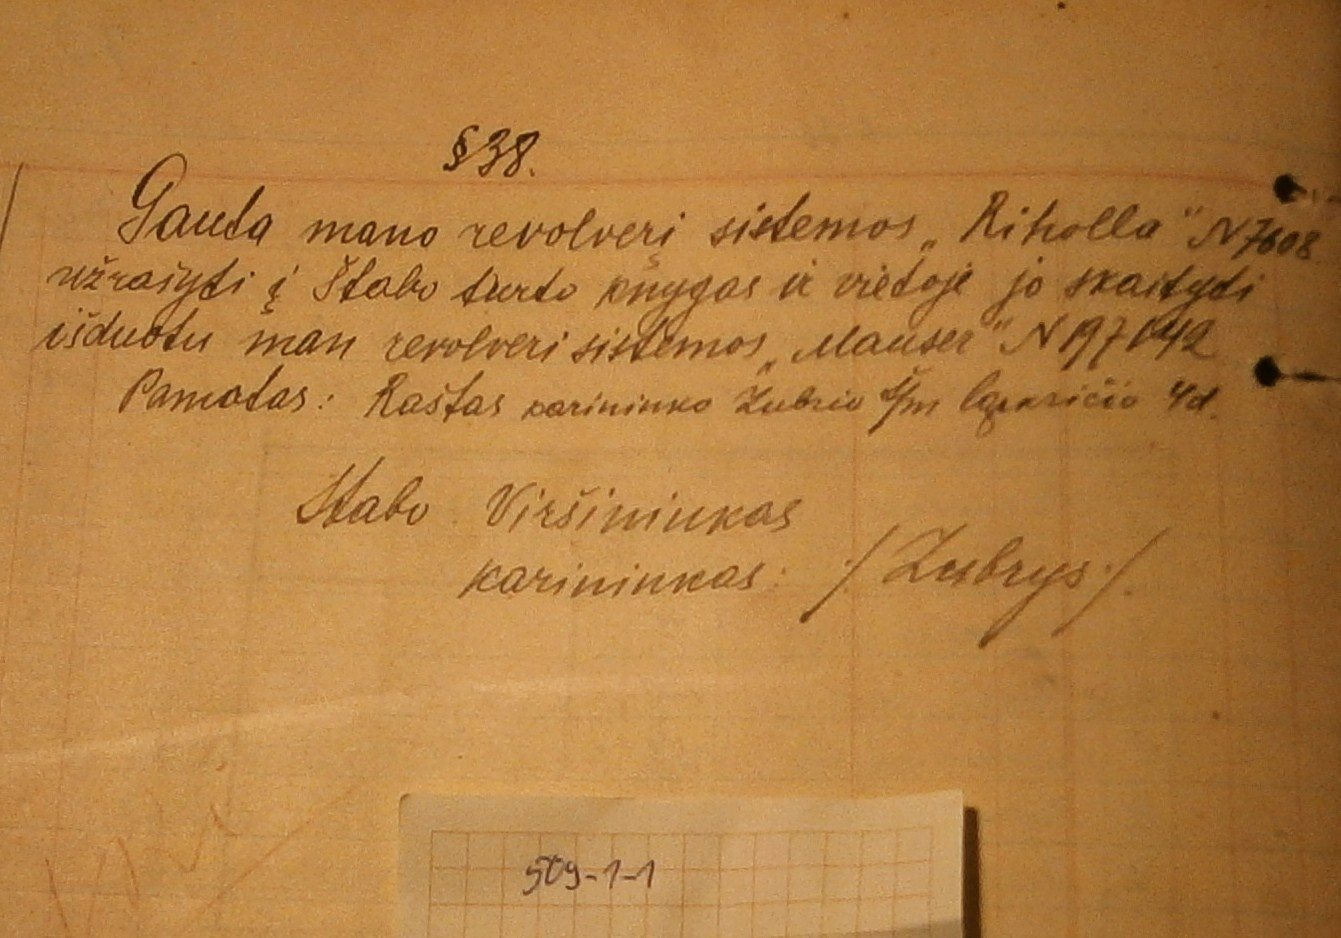 § 38.
Gauta mano revolverį sistemos „Riholla" N 7608
užrašyti į Štabo turto knygas ir vietoje jo skaityti
išduotu man revolveri sistemos „Mauser" N 197142
Pamatas: Raštas karininko Zubrio š/m lapkričio 4 d.
Štabo Viršininkas
karininkas: ./Zubrys./
509-1-1